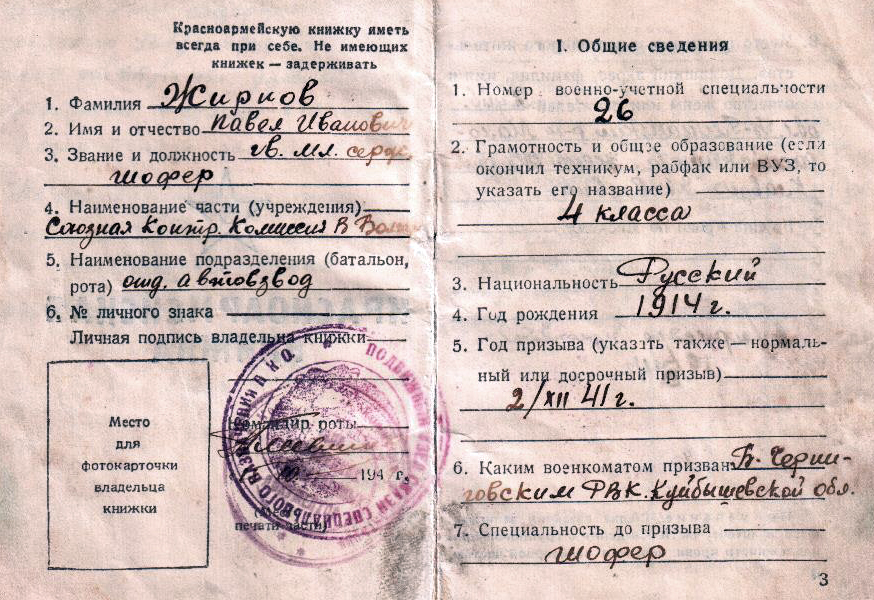 Красноармейскую книжку иметь
всегда при себе. Не имеющих
книжек — задерживать
1. Фамилия Жирнов
2. Имя и отчество Павел Иванович
3. Звание и должность гв. мл. серж.
шофер
4. Наименование части (учреждения)
Союзная Контр. Комиссия В
5. Наименование подразделения (батальон,
рота) отд. автовзвод
6. № личного знака
Личная подпись владельца книжки
Место
для
фотокарточки
владельца
книжки
Командир роты
194 г.
печати части)
I. Общие сведения
1. Номер военно-учетной специальности
26
2. Грамотность и общее образование (если
окончил техникум, рабфак или ВУЗ, то
указать его название)
4 класса
3. Национальность Русский
4. Год рождения 1914 г.
5. Год призыва (указать также — нормаль-
ный или досрочный призыв)
2/XII 41 г.
6. Каким военкоматом призван Б. Черни-
говским РВК. Куйбышевской обл.
7. Специальность до призыва
шофер
3